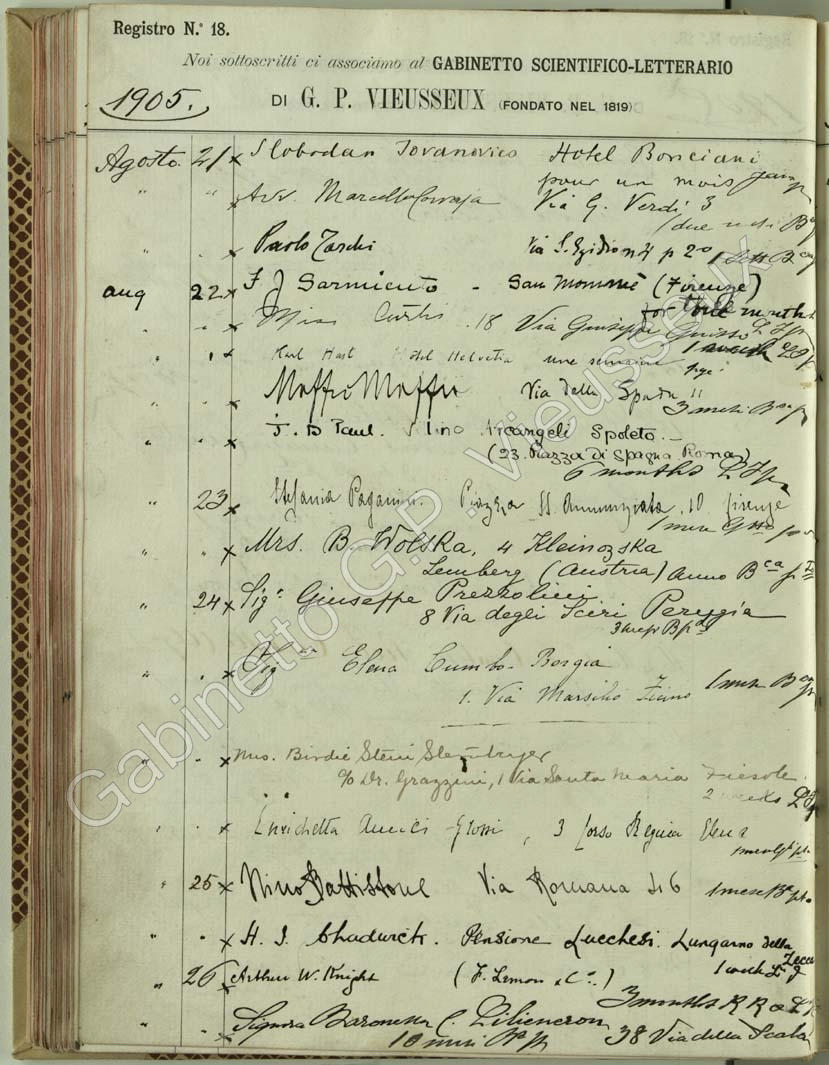 Registro N.° 18.
Noi sottoscritti ci associamo al GABINETTO SCIENTIFICO-LETTERARIO
1905.
DI G. P. VIEUSSEUX (FONDATO NEL 1819)
Agosto. 21 x Slobodan Jovanovics Hotel Bonciani
pour un mois
" " x Avv. Marcello Via G. Verdi 3
" " x Paolo Via S. Egidio n 21 p 2°
aug 22 x F J Sarmiento - San Mommè (Firenze)
for three months
" " x Miss Curtis . 18 Via Giuseppe Giusti
1 week
" " x Karl Hast Hotel Helvetia une semaine
" " x Maffio Maffii Via della Spada 11
3 mesi
" " x J. D Paul. Arcangeli Spoleto. -
(23. Piazza di Spagna Roma)
6 months
" 23 x Stefania Paganini. Piazza SS. Annunziata. 10. firenze
1 mese
" " x Mrs. B. Wolska, 4 Kleinozska
Lemberg (Austria) Anno
" 24 x Sigr. Giuseppe Prezzolini
8 Via degli Sciri Perugia
" " x Elena Cumbo-Borgia
1. Via Marsilio Ficino 1 mese
" " x Mrs. Birdie Stein
c/o Dr. Grazzini, 1 Via Santa Maria Fiesole.
2 weeks
" " x Enrichetta Amici Grossi, 3 Corso Regina Elena
" 25 x Nino Battistoni Via Romana 46
1 mese
" " x H. S. Chadwick. Pensione Lucchesi. Lungarno della Zecca
1 week
" 26 x Arthur W. Knight (F. Lemon & Co.)
3 months
" " x Signora Baronessa C. Liliencron
38 Via della Scala
Gabinetto G.P. Vieusseux